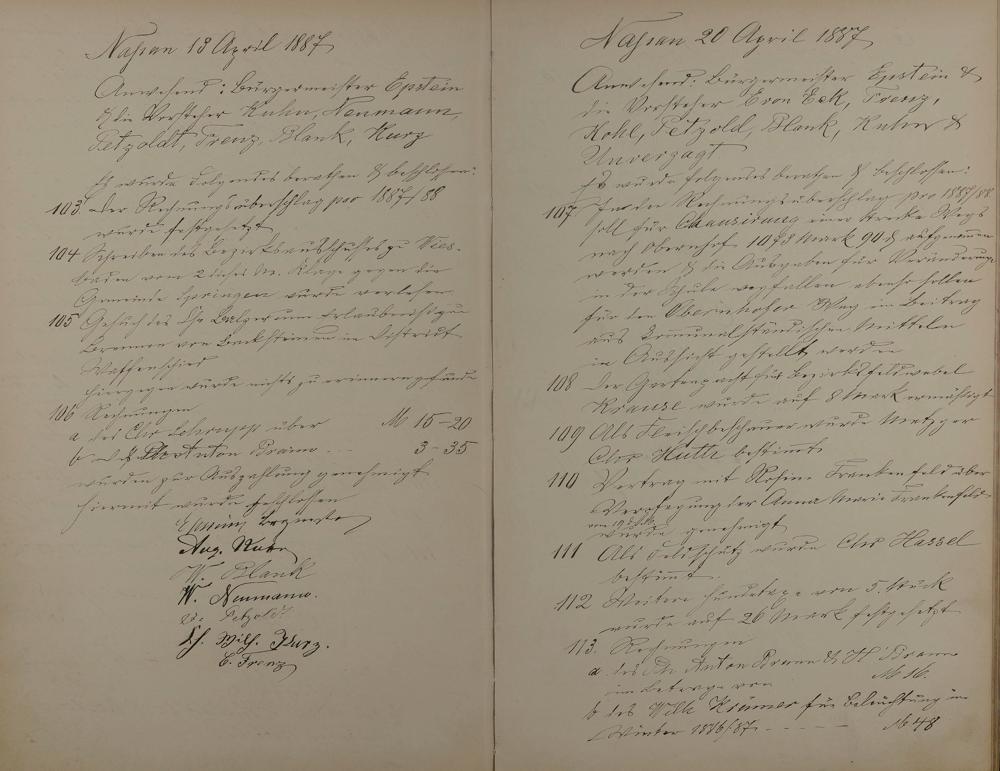 Nassau 13 April 1887
Anwesend: Bürgermeister Epstein
& die Vorsteher Kuhn, Neumann,
Petzoldt, Trenz, Blank, Kurz
Es wurde Folgendes berathen & beschlossen:
103. Der Rechnungsüberschlag pro 1887/88
wurde festgesetzt
104 Schreiben des Bezirksausschusses zu Wies-
baden vom 2 dieses M. Klage gegen die
Gemeinde wurde verlesen
105 Gesuch des Balzer um Erlaubniß zum
Brennen von Backsteinen im District
Kaffenschied
Hiergegen wurde nichts zu erinnern gefunden
106 Rechnungen
a des Chr. über M 15-20
b des Anton Bramm 3-35
wurden zur Auszahlung genehmigt
Hiermit wurde geschlossen
Epstein Bürgermstr
Aug. Kuhn
W. Blank
W. Neumann.
Petzoldt
Wilh. Kurz.
C. Trenz
Nassau 20 April 1887
Anwesend: Bürgermeister Epstein &
die Vorsteher von Eck, Trenz,
Kohl, Petzold, Blank, Kuhn &
Unverzagt
Es wurde folgendes berathen & beschlossen:
107 In den Rechnungsüberschlag pro 1887/88
soll für Chausirung einer Strecke Wegs
nach Obernhof 1073 Mark 90 d aufgenommen
werden & die Ausgaben für Veränderung
in der Schule wegfallen ebenso sollen
für den Obernhofer Weg ein Beitrag
aus Communalständischen Mitteln
in Aussicht gestellt werden
108 Der Gartenpacht für Bezirksfeldwebel
Krause wurde auf 8 Mark ermäßigt
109 Als Fleischbeschauer wurde Metzger
Chr Huth bestimmt
110 Vertrag mit Rosine Frankenfeld über
Verpflegung der Anna Marie Frankenfeld
wurde genehmigt
111 Als Feldschütz wurde Chr Hassel
bestimmt
112 Weitere Hundetaxe von 5 Stück
wurde auf 26 Mark festgesetzt
113. Rechnungen
a des Anton Bramm & H Bramm
im Betrage von M 16.
b des Wilh Krämer für Beleuchtung im
Winter 1886/87 - - - - M 48